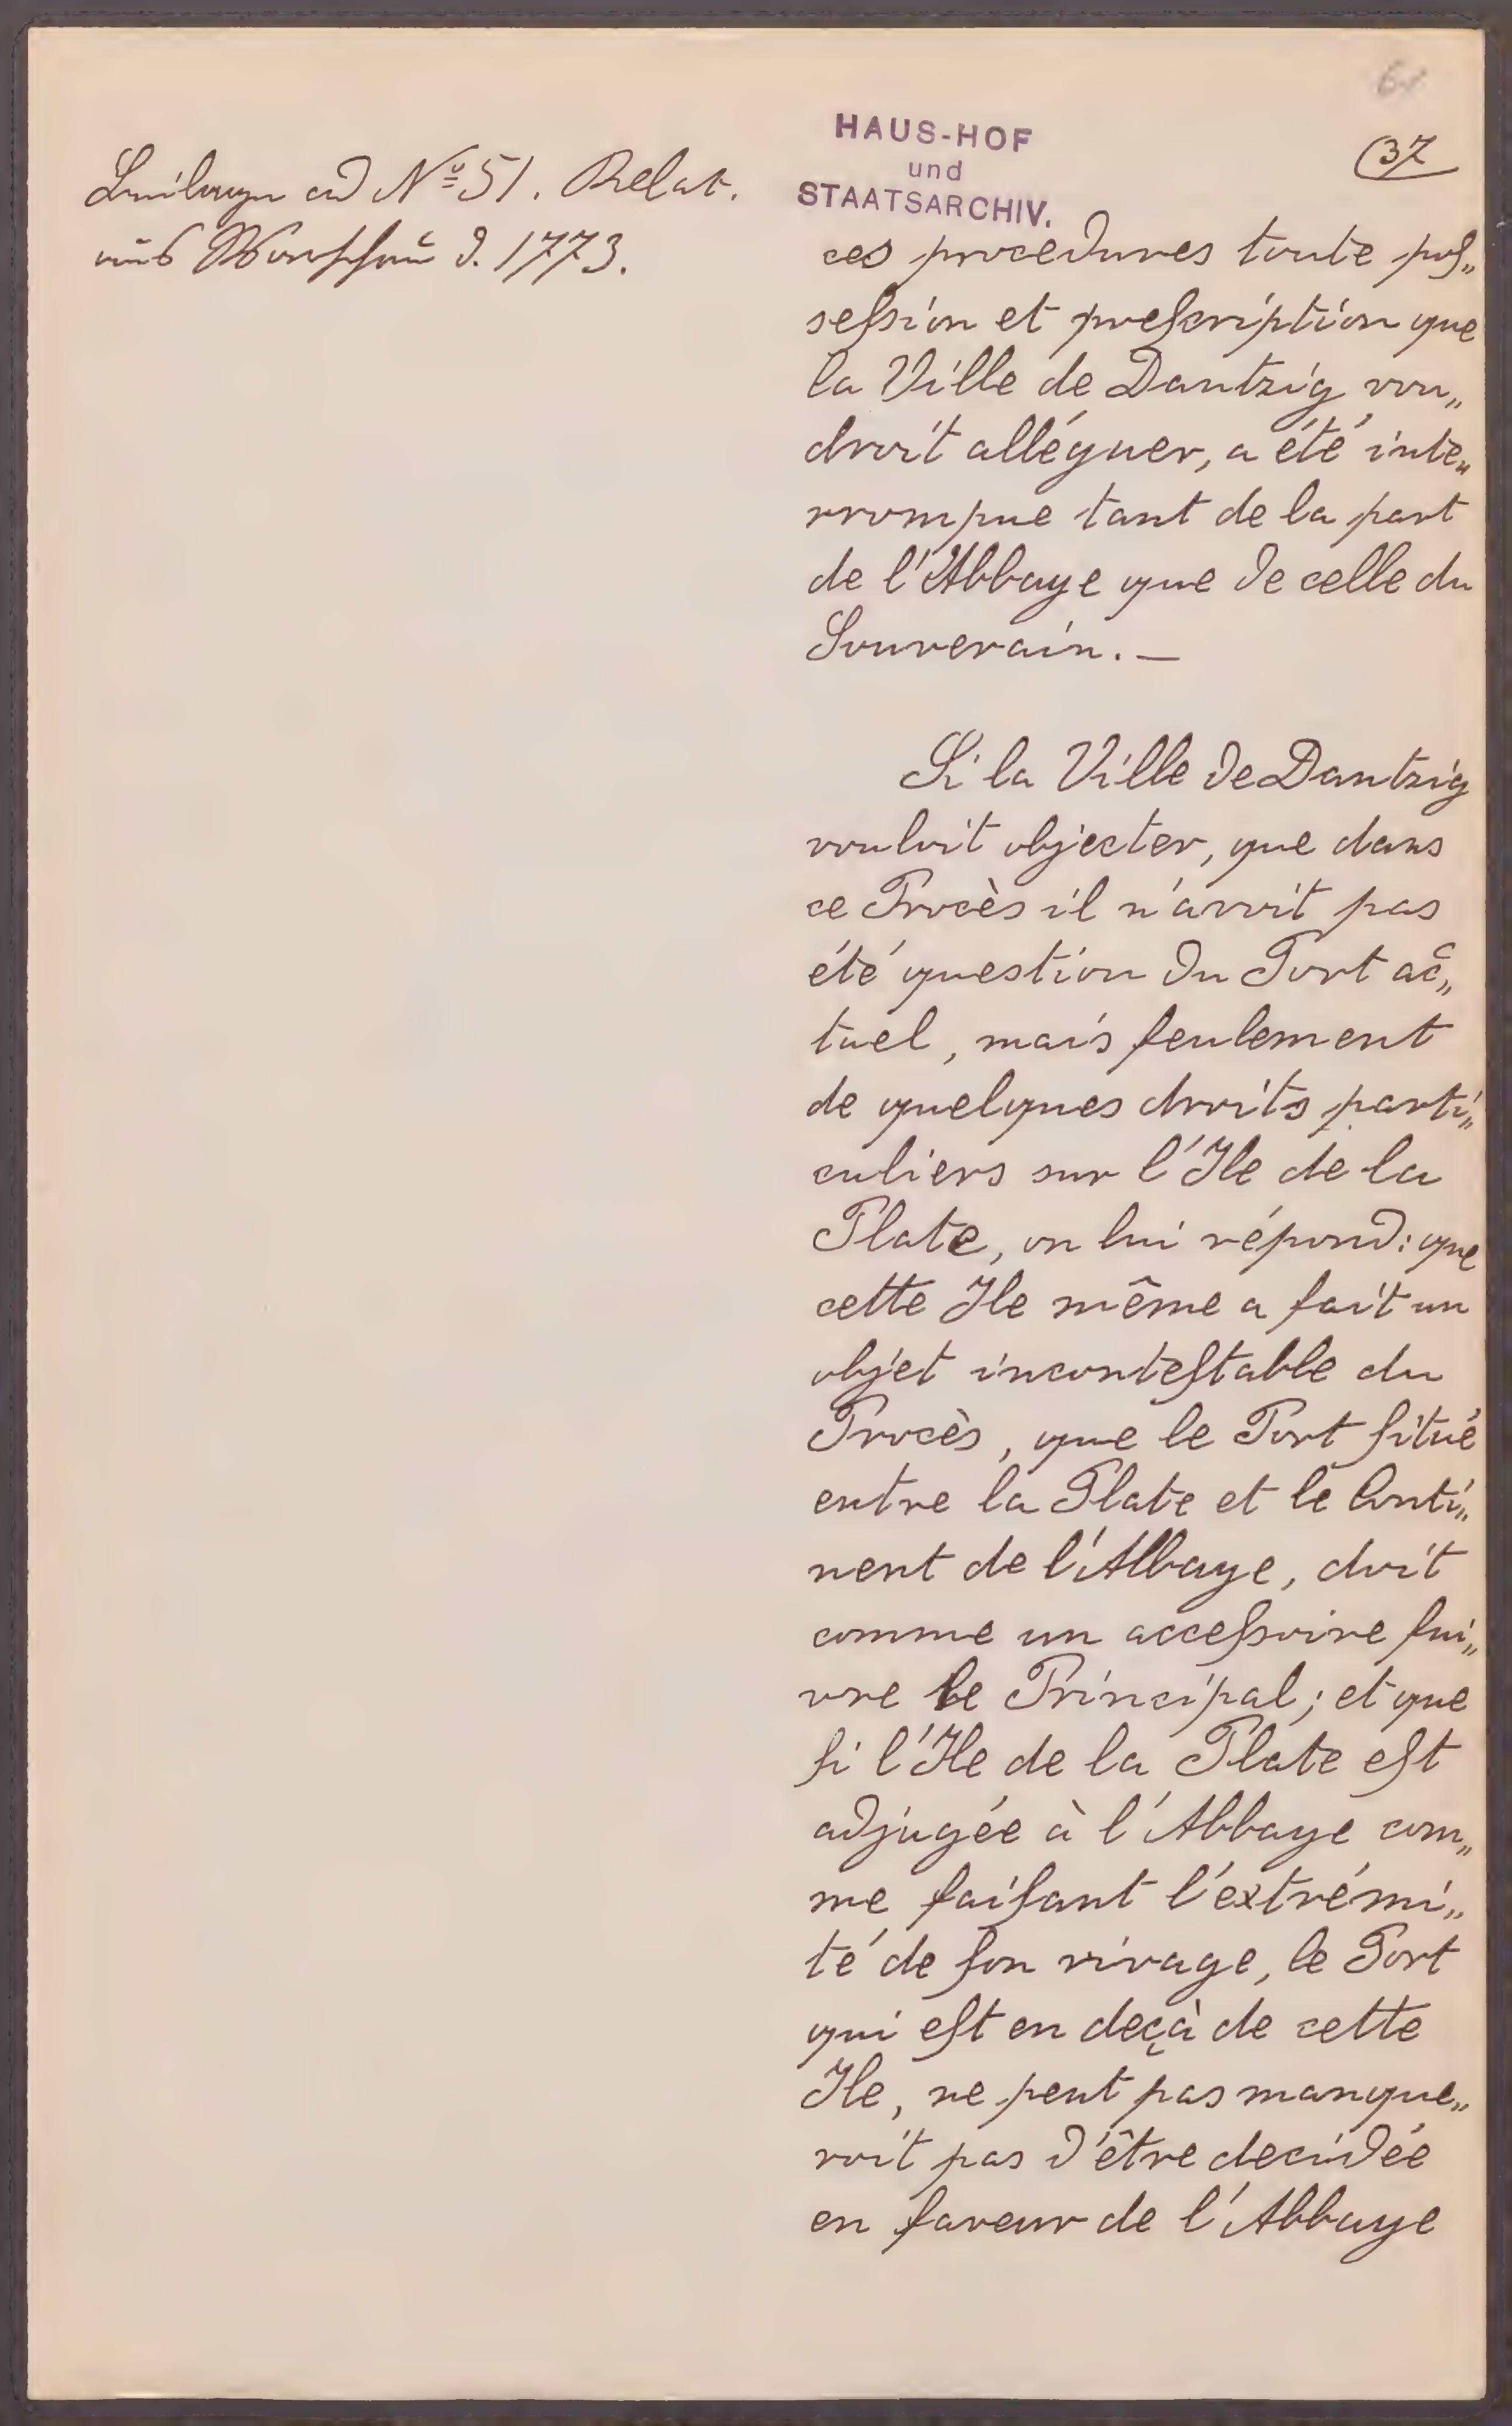 HAUS-HOF
und
STAATSARCHIV.
37
Beilagen ad Nº 51. Relat.
aus Warschau d. 1773.
ces procedures toute pos„
seſsion et preſcription que
la Ville de Dantzig vou„
droit alléguer, a été inte„
rrompue tant de la part
de l'Abbaye que de celle du
Souverain. —
Si la Ville de Dantzig
vouloit objecter, que dans
ce Procès il n'avoit pas
été question du Port ac„
tuel, mais ſeulement
de quelques droits parti„
culiers sur l'Ile de la
Plate, on lui répond: que
cette Ile même a fait un
objet inconteſtable du
Procès, que le Port ſitué
entre la Plate et le Conti„
nent de l'Abbaye, doit
comme un acceſsoire ſui„
vre le Principal; et que
ſi l'Ile de la Plate eſt
adjugée à l'Abbaye com„
me faiſant l'extrémi„
té de ſon rivage, le Port
qui eſt en deçà de cette
Ile, ne peut pas manque„
roit pas d'être decidée
en faveur de l'Abbaye